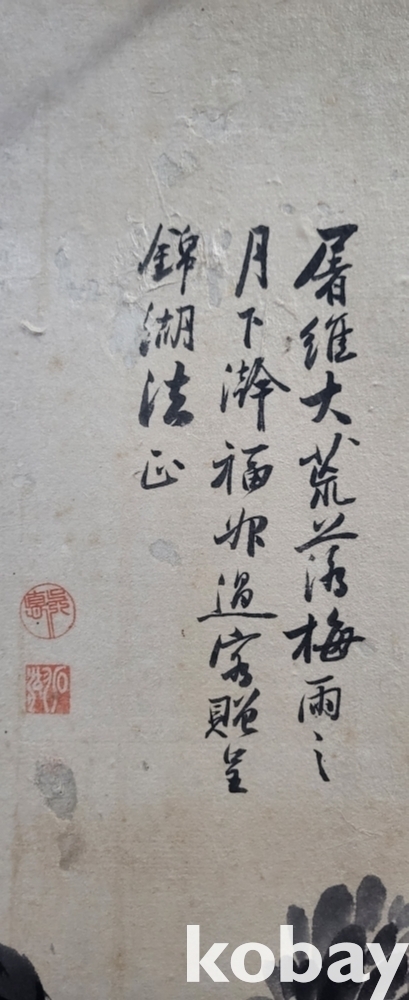 屠維大荒落梅雨之
月下澣福過客贈呈
錦湖法正
kobay